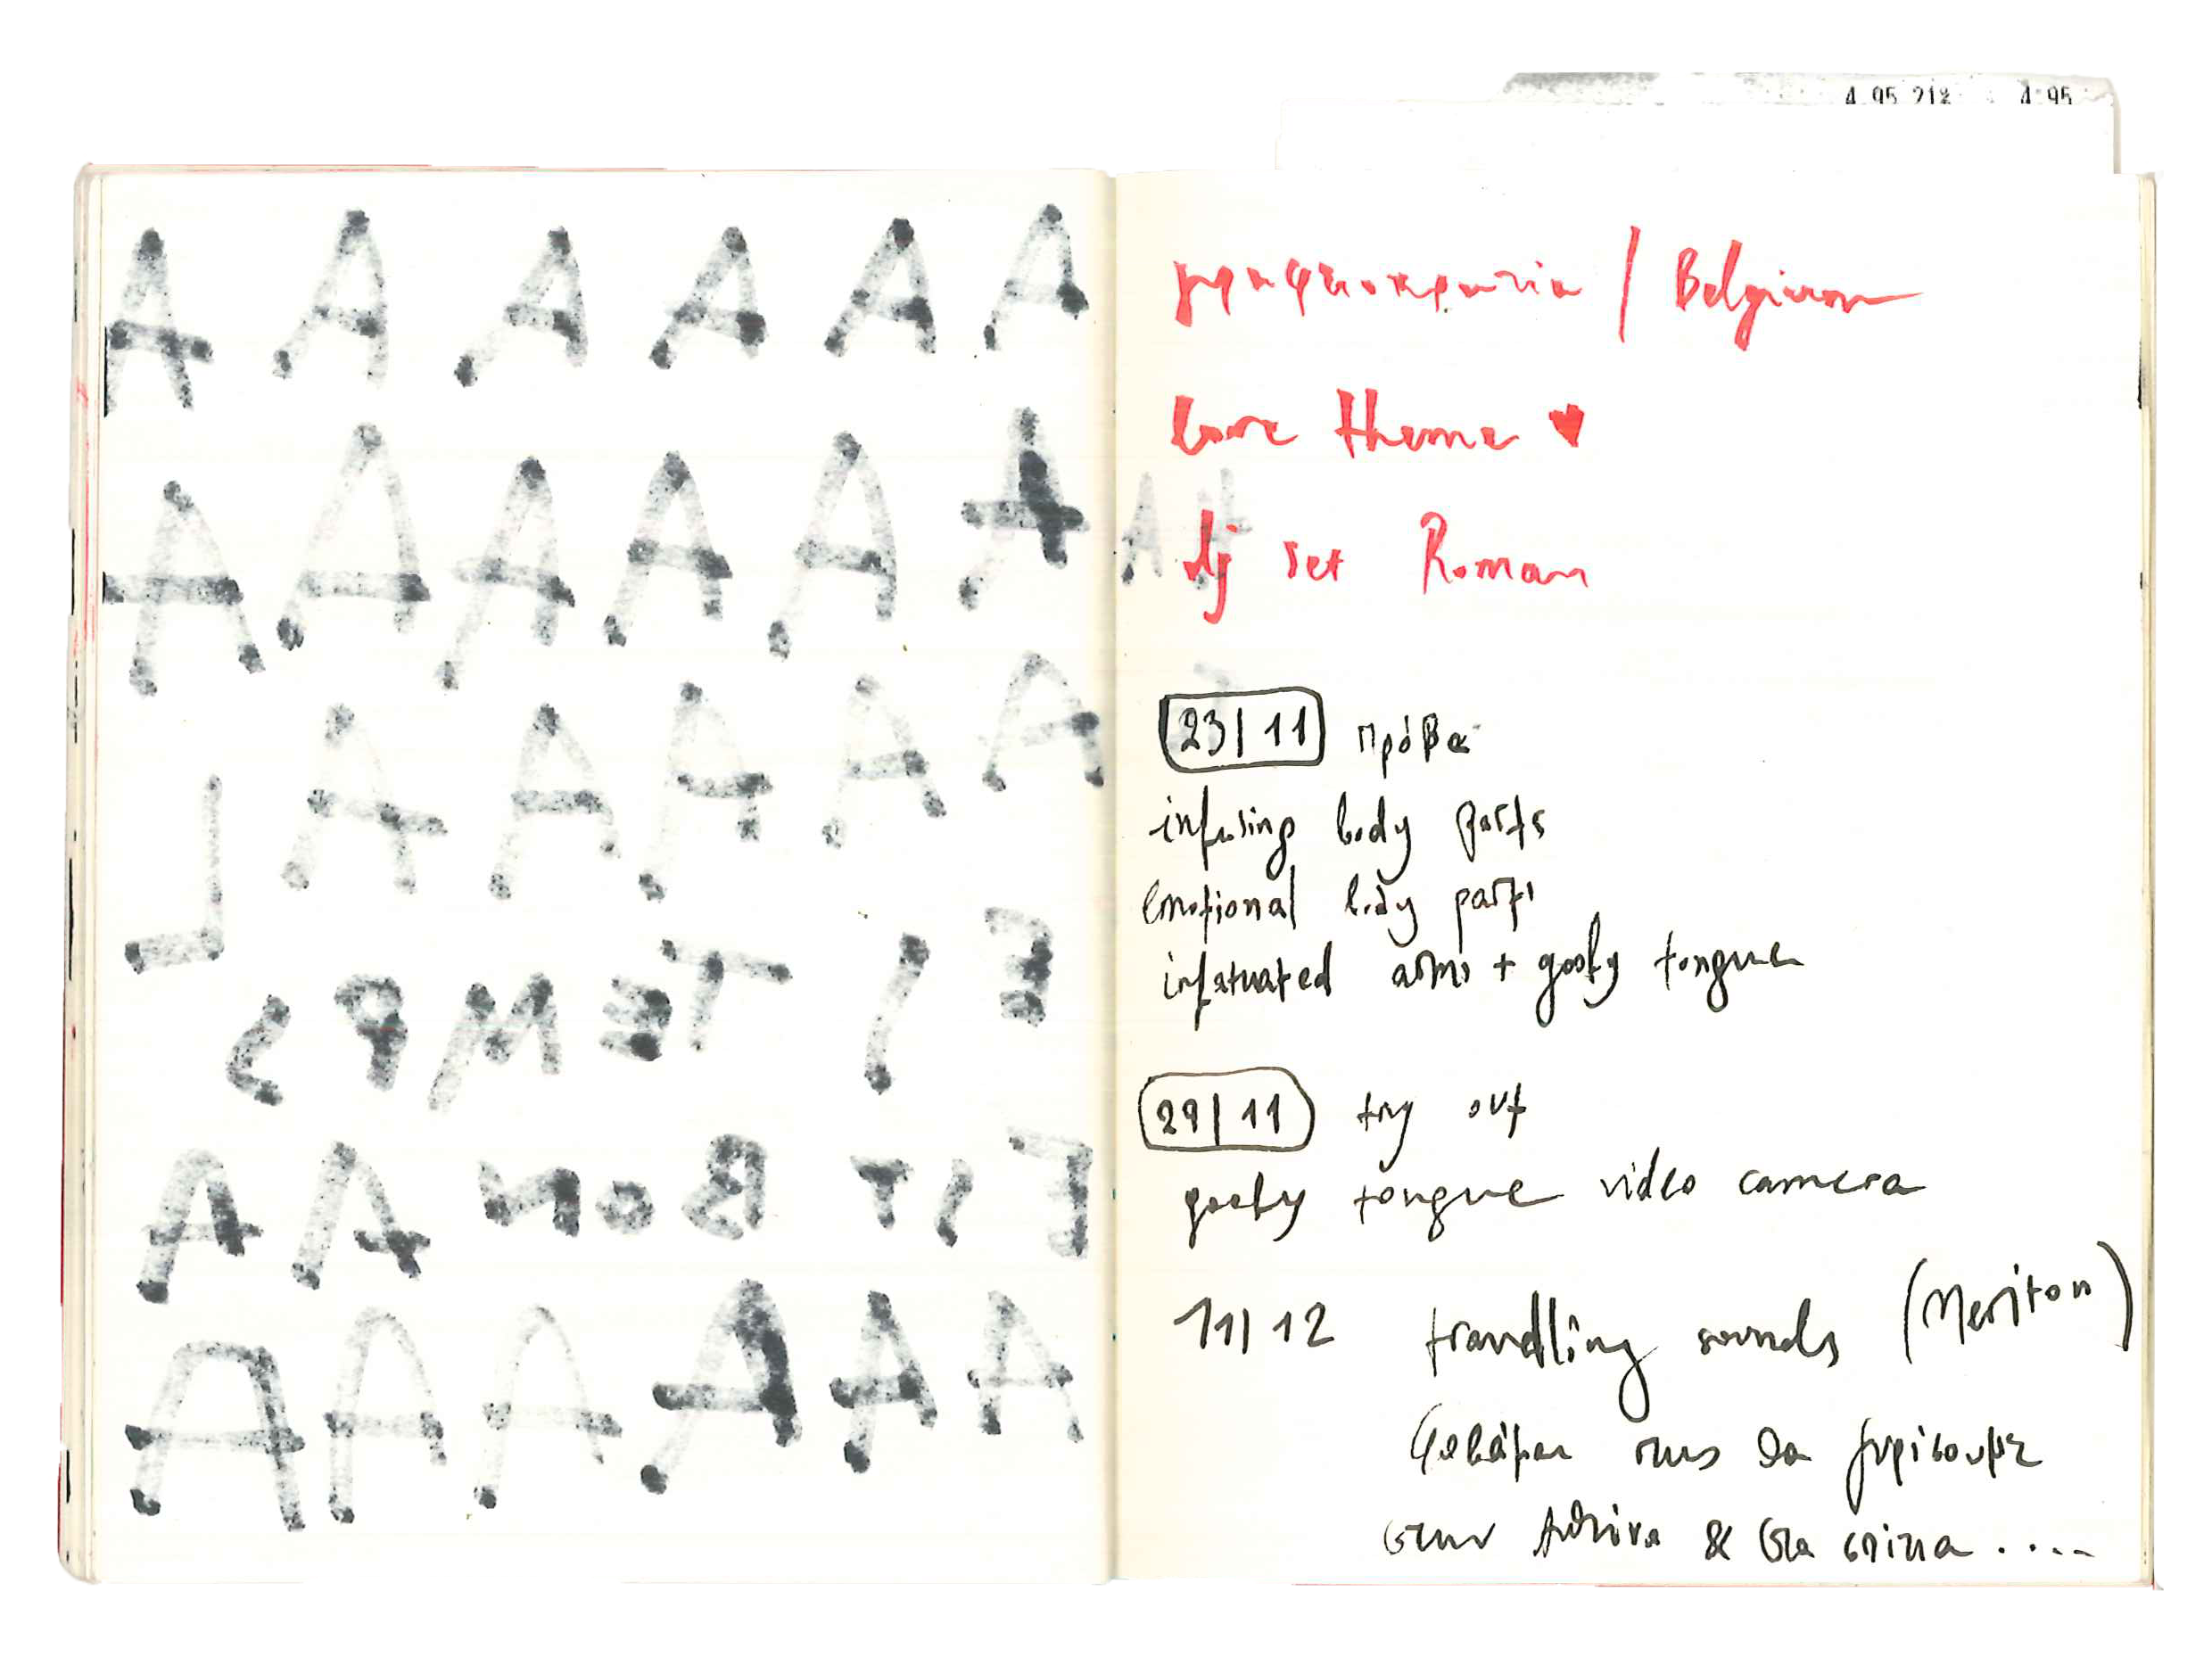 4.95 21% 4.95
A A A A A A
A A A A A A
A A A A A L
TEMPS
BON A A
A A A A A A
γραφειοκρατία / Belgium
love theme ♥
dj set Roman
23/11 πρόβα
infusing body parts
emotional body parts
infatuated arms + goofy tongue
29/11 try out
goofy tongue video camera
11/12 travelling sounds (Meriton)
φοβάμαι πως θα γυρίσουμε
στην Αθήνα & στα σπίτια ....